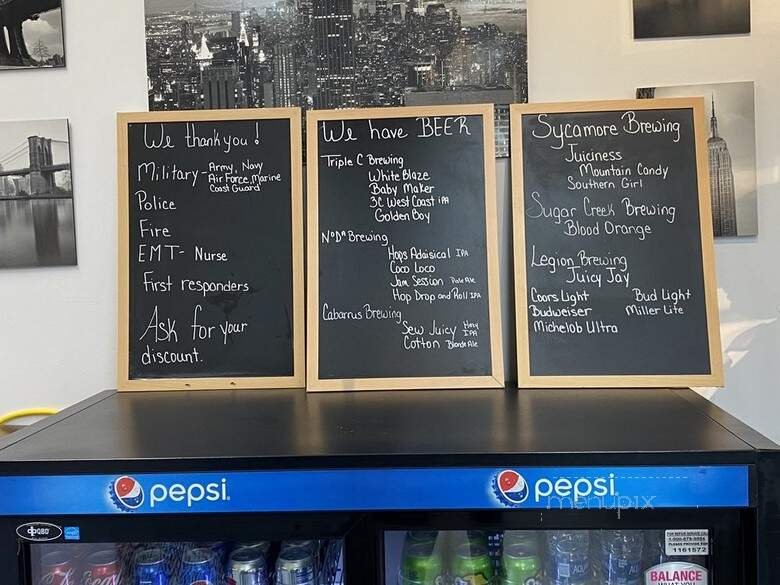 We thank you!
Military - Army, Navy
Air Force, Marine
Coast Guard
Police
Fire
EMT- Nurse
First responders
Ask for your
discount.
We have BEER
Triple C Brewing
White Blaze
Baby Maker
3C West Coast IPA
Golden Boy
NoDa Brewing
Hops Adaisical IPA
Coco Loco
Jam Session Pale Ale
Hop Drop and Roll IPA
Cabarrus Brewing
Sew Juicy Hazy
IPA
Cotton Blonde Ale
Sycamore Brewing
Juiciness
Mountain Candy
Southern Girl
Sugar Creek Brewing
Blood Orange
Legion Brewing
Juicy Jay
Coors Light Bud Light
Budweiser Miller Lite
Michelob Ultra
pepsi
pepsi
menupix
1161572
BALANCE